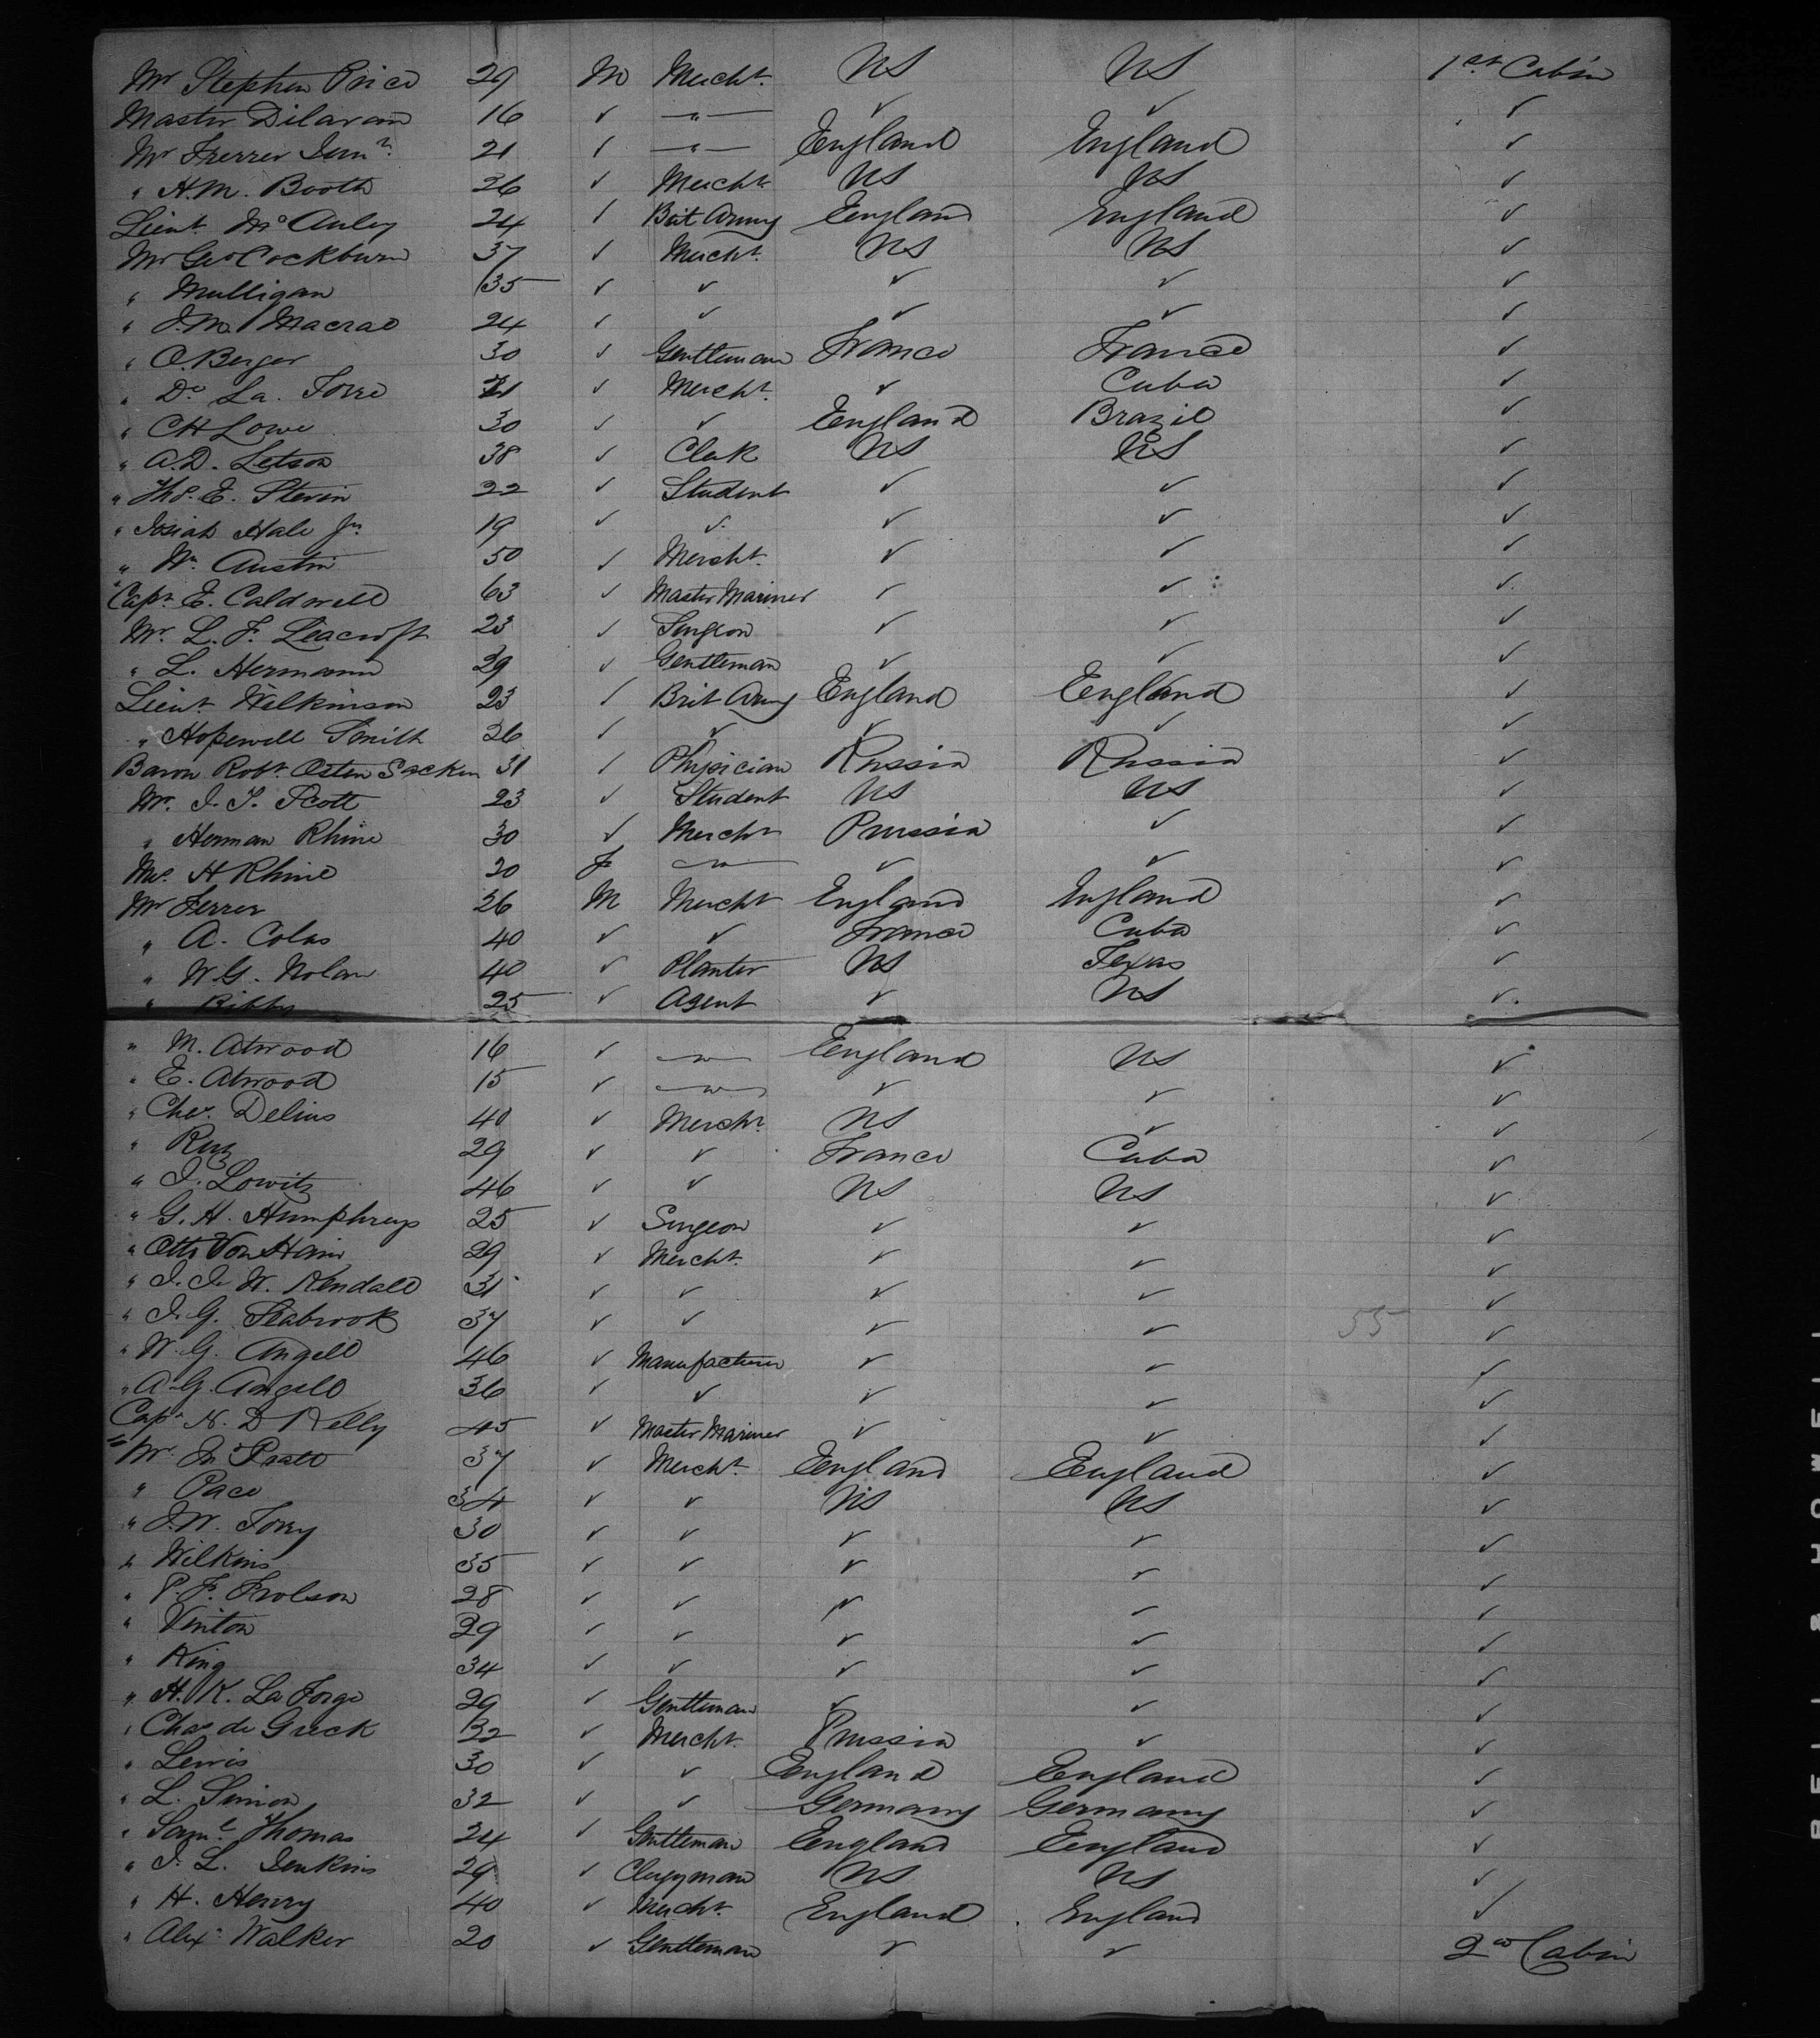 Mr Stephen Price 29 M Mercht. US US 1st Cabin
Master Dilaram 16 ✓ —"— ✓ ✓ ✓
Mr Ferrer Junr. 21 ✓ —"— England England ✓
" H.M. Booth 26 ✓ Mercht US US ✓
Lieut. McAuley 24 ✓ Brit Army England England ✓
Mr Geo Cockburn 37 ✓ Mercht. US US ✓
" Mulligan 35 ✓ ✓ ✓ ✓ ✓
" J. Macrae 24 ✓ ✓ ✓ ✓ ✓
" O. Berger 30 ✓ Gentleman France France ✓
" De La. Torre 21 ✓ Mercht. ✓ Cuba ✓
" C H Lowe 30 ✓ ✓ England Brazil ✓
" A.D. Letson 38 ✓ Clerk US US ✓
" Thos. E. Stevin 22 ✓ Student ✓ ✓ ✓
" Josiah Hale Jr. 19 ✓ ✓ ✓ ✓ ✓
" Wm Austin 50 ✓ Mercht. ✓ ✓ ✓
Capt. E. Caldwell 63 ✓ Master Mariner ✓ ✓ ✓
Mr. L. F. Leacroft 23 ✓ Surgeon ✓ ✓ ✓
" L. Hermann 29 ✓ Gentleman ✓ ✓ ✓
Lieut. Wilkinson 23 ✓ Brit Army England England ✓
" Hopewell Smith 26 ✓ ✓ ✓ ✓ ✓
Baron Robt. Osten Sacken 31 ✓ Physician Russia Russia ✓
Mr. J. T. Scott 23 ✓ Student US US ✓
" Herman Rhine 30 ✓ Mercht Prussia ✓ ✓
Mrs. H Rhine 20 f —"— ✓ ✓ ✓
Mr Ferrer 26 M Mercht England England ✓
" A. Colas 40 ✓ ✓ France Cuba ✓
" W.G. Nolan 40 ✓ Planter US Texas ✓
" Bibby 25 ✓ Agent ✓ US ✓
" M. Atwood 16 ✓ —"— England US ✓
" E. Atwood 15 ✓ —"— ✓ ✓ ✓
" Chas. Delius 40 ✓ Mercht. US ✓ ✓
" Ruz 29 ✓ ✓ France Cuba ✓
" I. Lowitz 46 ✓ ✓ US US ✓
" G. H. Humphreys 25 ✓ Surgeon ✓ ✓ ✓
" Otto Von Hain 29 ✓ Mercht. ✓ ✓ ✓
" J. J. W. Kendall 31 ✓ ✓ ✓ ✓ ✓
" J. G. Seabrook 37 ✓ ✓ ✓ ✓ 55 ✓
" W. G. Angell 46 ✓ Manufacturer ✓ ✓ ✓
" A. G. Angell 36 ✓ ✓ ✓ ✓ ✓
Capt. N. D Kelly 45 ✓ Master Mariner ✓ ✓ ✓
Mr. Pratt 37 ✓ Mercht. England England ✓
" Pace 34 ✓ ✓ US US ✓
" J.W. Tory 30 ✓ ✓ ✓ ✓ ✓
" Wilkins 35 ✓ ✓ ✓ ✓ ✓
" P. F. Frolson 28 ✓ ✓ ✓ ✓ ✓
" Vinton 29 ✓ ✓ ✓ ✓ ✓
" King 34 ✓ ✓ ✓ ✓ ✓
" H. K. La Forge 29 ✓ Gentleman ✓ ✓ ✓
" Chas de Greck 32 ✓ Mercht. Prussia ✓ ✓
" Lewis 30 ✓ ✓ England England ✓
" L. Simon 32 ✓ ✓ Germany Germany ✓
" Saml. Thomas 24 ✓ Gentleman England England ✓
" J. L. Jenkins 29 ✓ Clergyman US US ✓
" H. Henry 40 ✓ Mercht. England England ✓
" Alexr. Walker 20 ✓ Gentleman ✓ ✓ 2nd Cabin
BELL & HOWELL